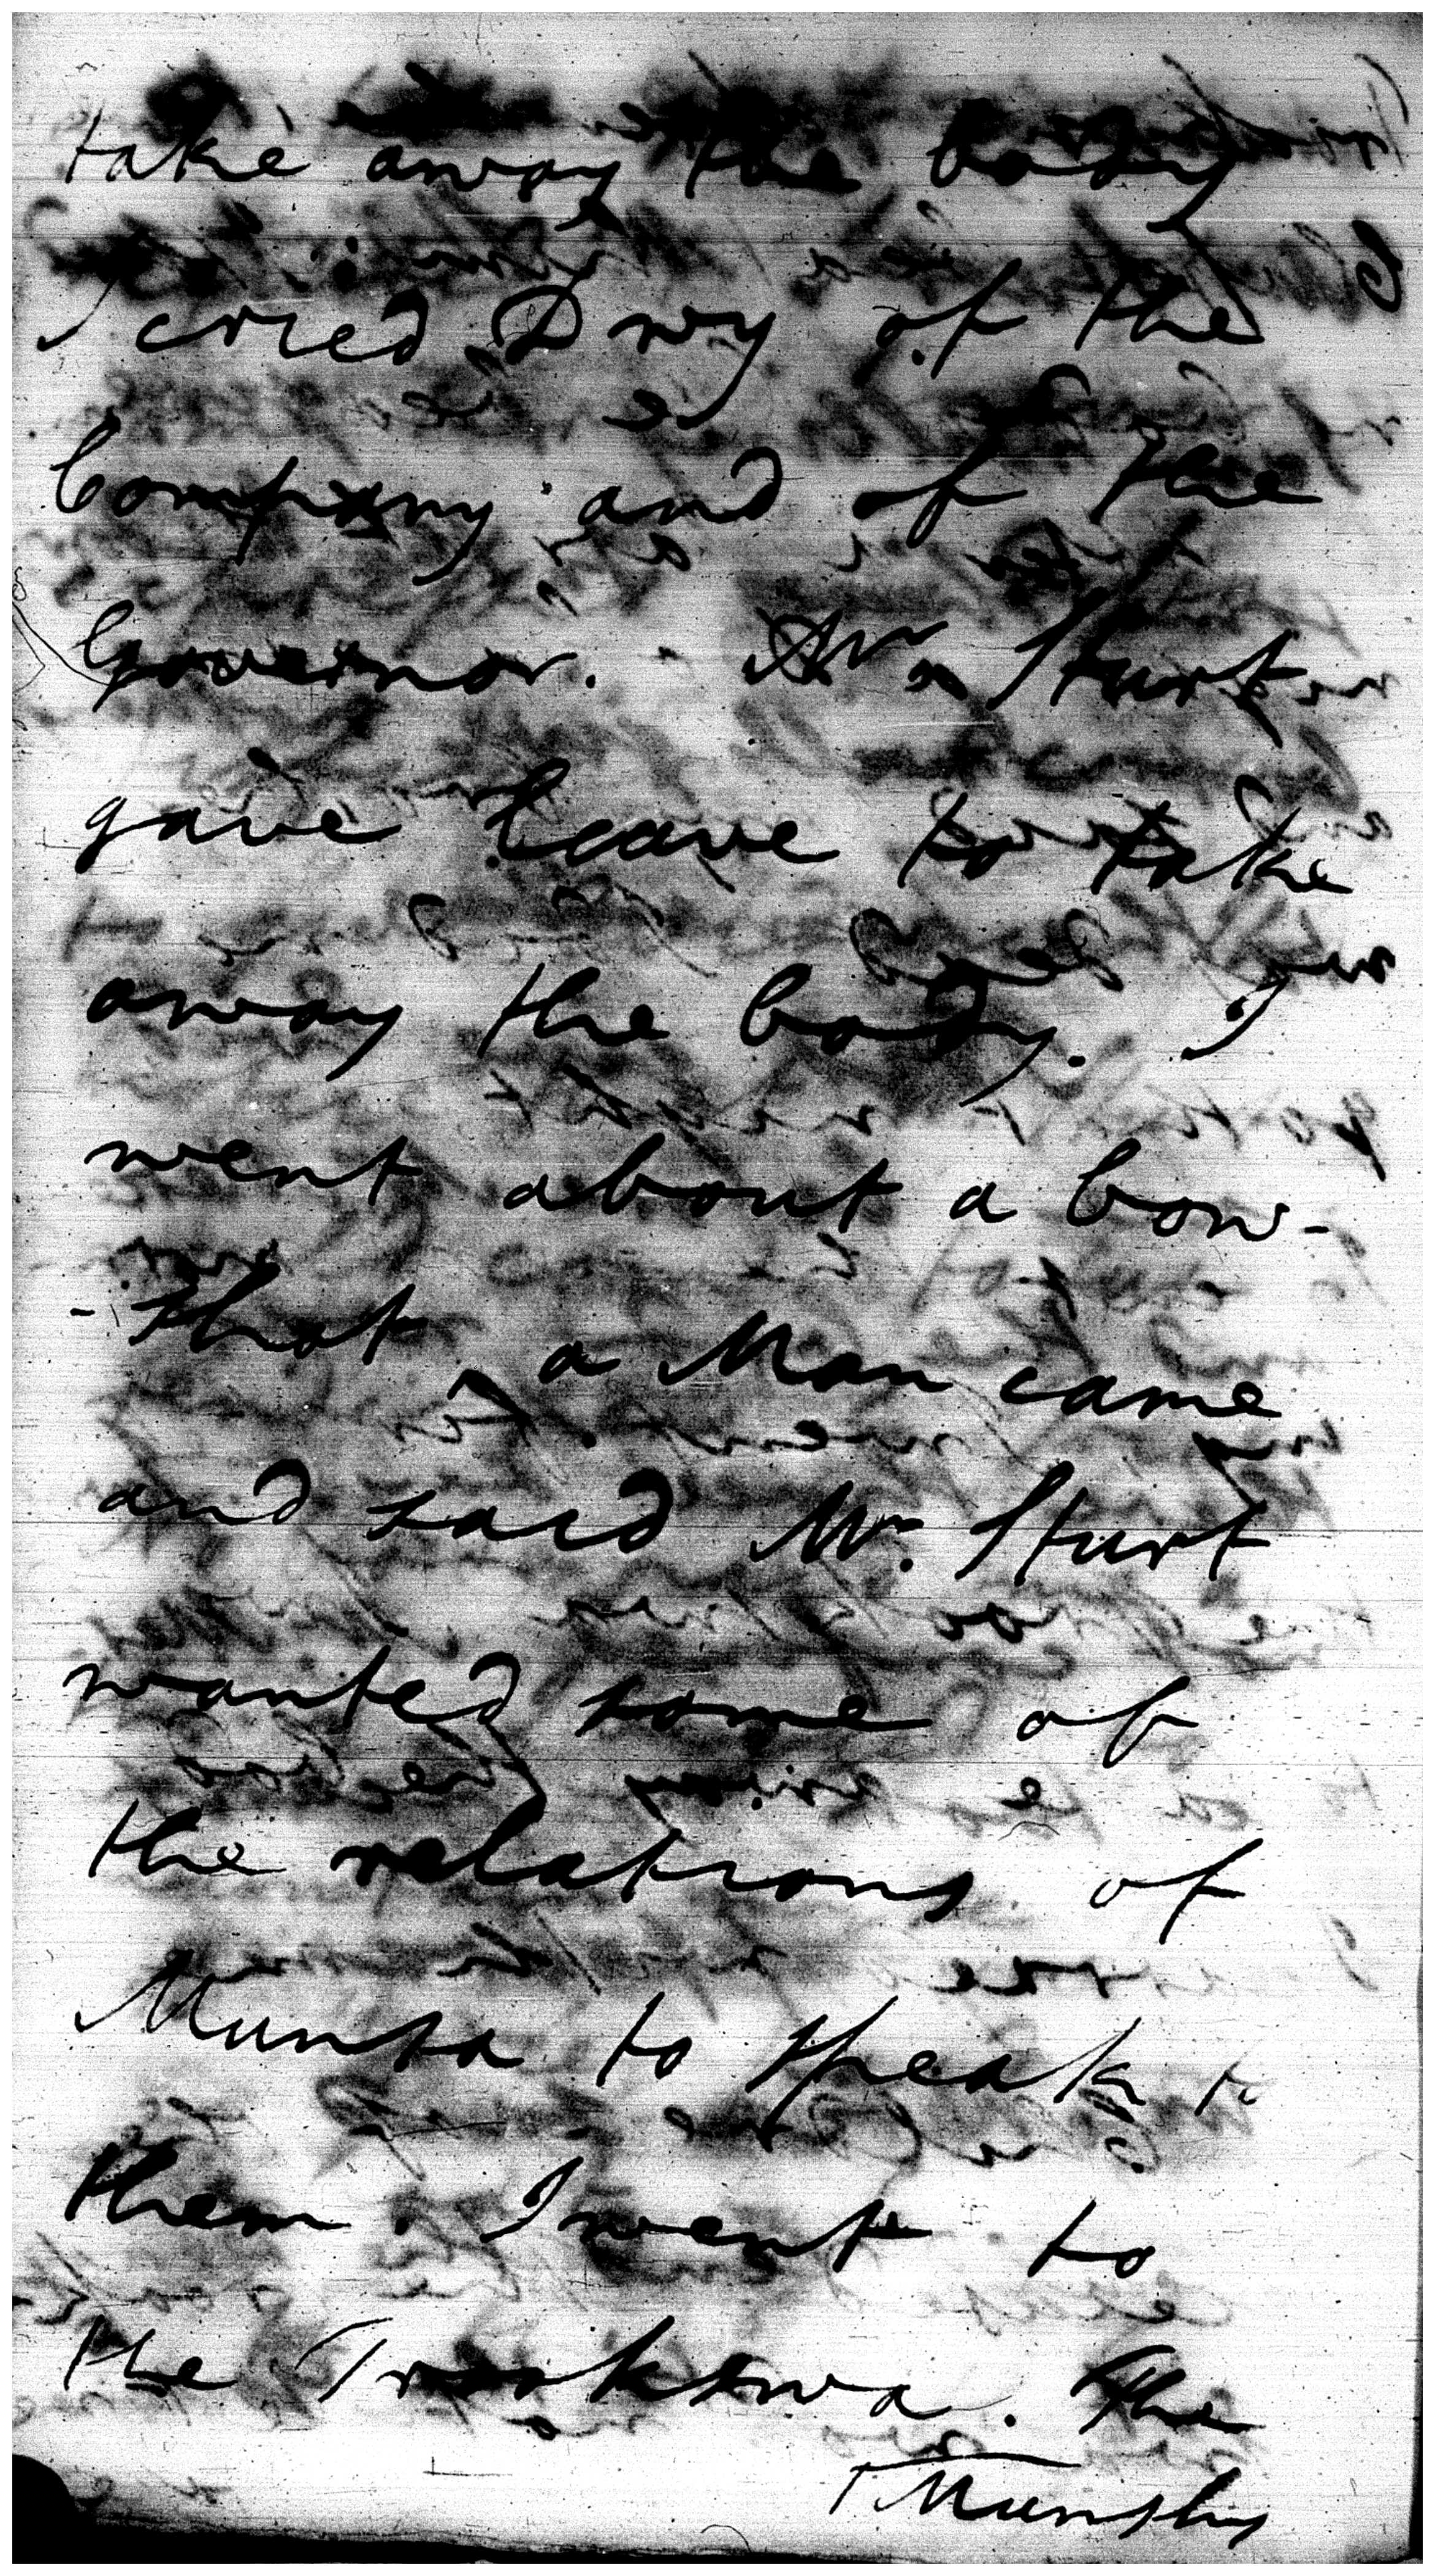 take away the body
I cried Dwy of the
Company and of the
Governor. Mr Sturt
gave leave to take
away the body. I
went about a bow-
-shot a Man came
and said Mr. Sturt
wanted some of
the relations of
Munsa to speak to
them. I went to
the The
Munshy